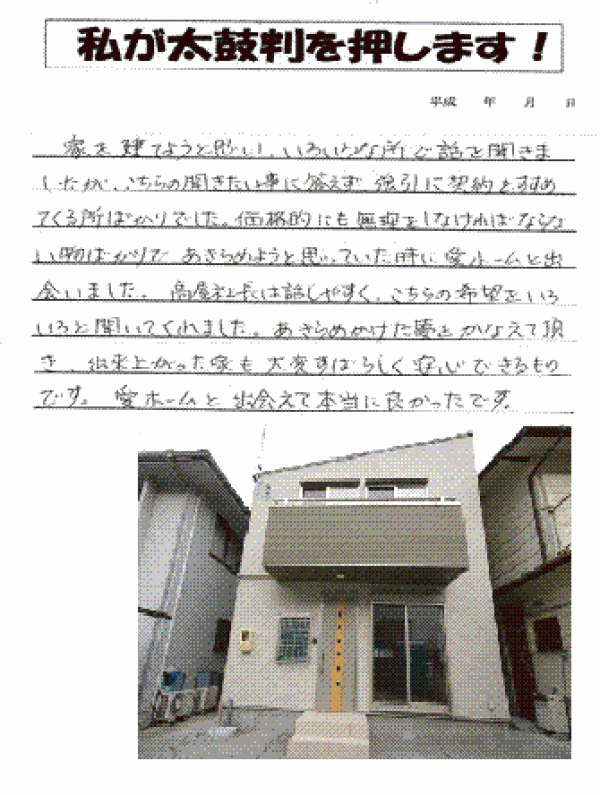 私が太鼓判を押します！
平成　年　月　日
家を建てようと思い、いろいろな所で話を聞きま
したが、こちらの聞きたい事に答えず、強引に契約をすすめ
てくる所ばかりでした。価格的にも無理をしなければならな
い物ばかりで、あきらめようと思っていた時に愛ホームと出
会いました。高尾社長は話しやすく、こちらの希望をいろ
いろと聞いてくれました。あきらめかけた夢をかなえて頂
き、出来上がった家も大変すばらしく安心できるもの
です。愛ホームと出会えて本当に良かったです。